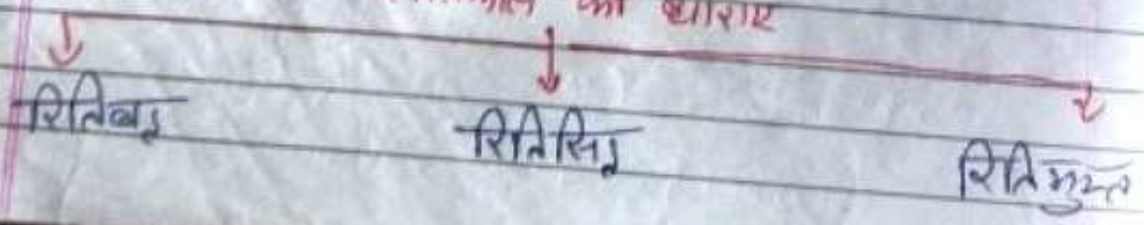 की धाराए
रितिबद्ध रितिसिद्ध रितिमुक्त